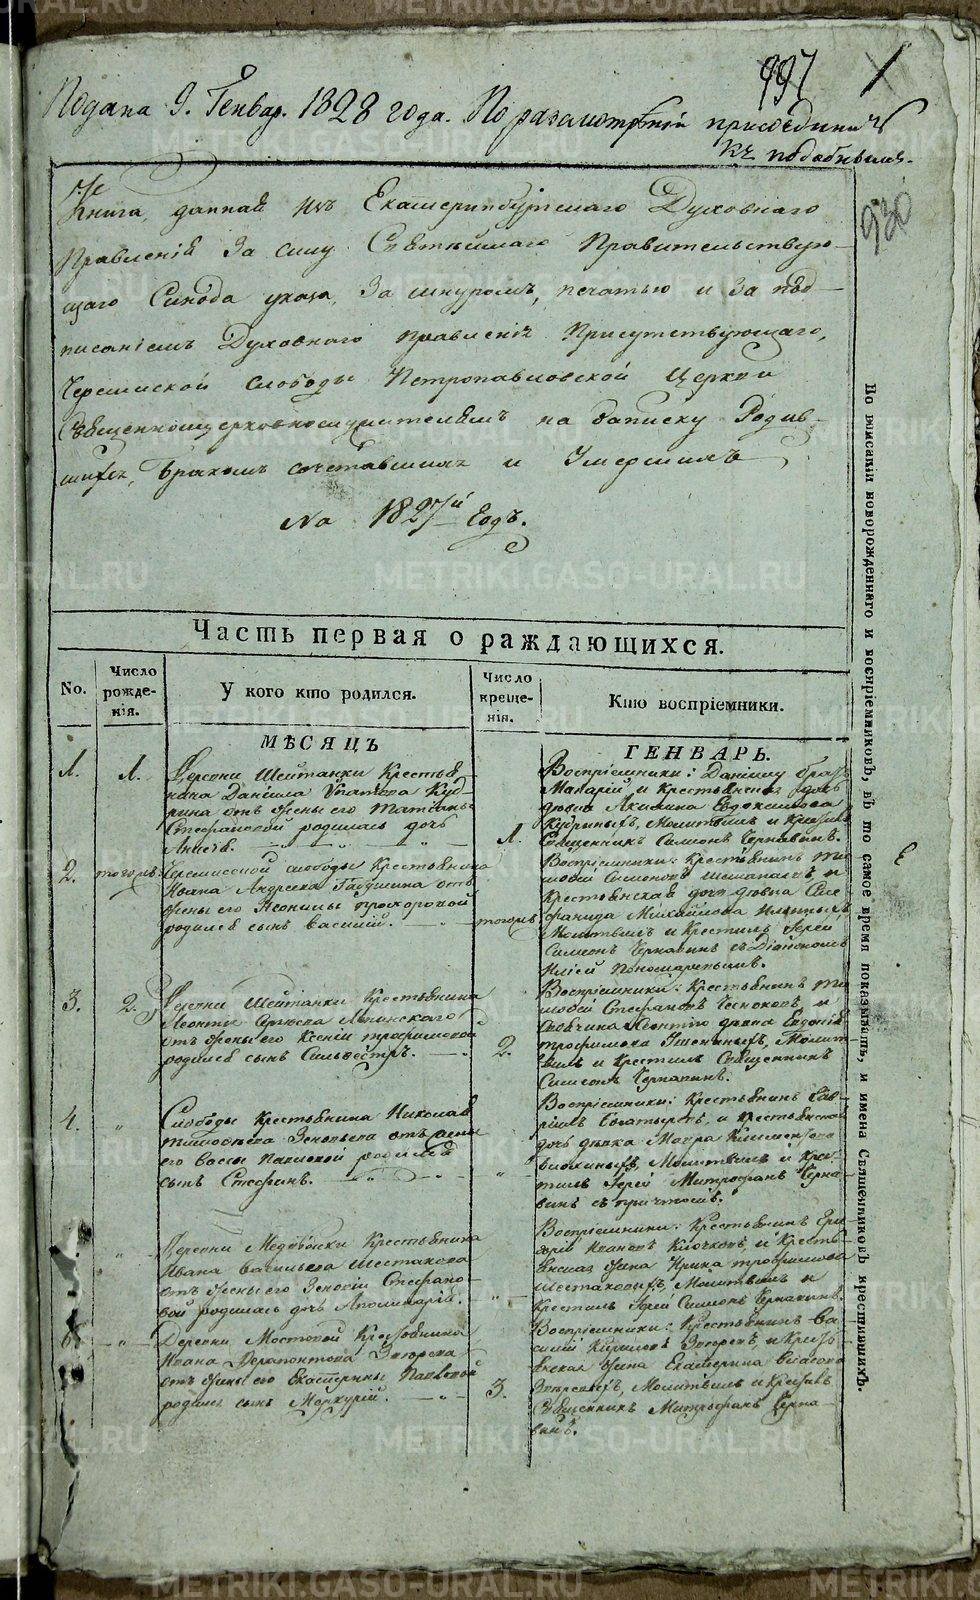 997 1
Подана 9. Генвар. 1828 года. По разсмотрѣнiи присоединить
къ подобнымъ.
930
Книга, данная изъ Екатеринбургскаго Духовнаго
Правленiя за силу Святѣйшаго Правительствую-
щаго Синода указа, за шнуромъ, печатью и за под-
писанiемъ Духовнаго правленiя Присутствующаго,
Черемиской слободы Петропавловской Церкви
Священноцерковнослужителямъ на записку Родив-
шихся, Бракомъ сочетавшихся и Умершихъ
На 1827й Годъ.
Часть первая о раждающихся.
No.
Число рожде-нiя.
У кого кто родился.
Число креще-нiя.
Кто воспрiемники.
МѢСЯЦЪ ГЕНВАРЬ.
1. 1. Деревни Шейтанки Крестья-
нина Данiила Упатова Куд-
рина отъ жены его Татiаны
Стефановой родилась дочь
Анисья.
1.
Воспрiемники: Данiилу братъ
Макарiй и Крестьянска дочь
дѣвка Акилина Евдокимова
Кудриныхъ, Молитвилъ и Крестилъ
Священникъ Симеонъ Чернавинъ.
2. тогожъ Черемисской слободы Крестьянина
Ивана Андреева Габушина отъ
жены его Неонилы Прохоровой
родился сынъ Василiй.
тогожъ
Воспрiемники: Крестьянинъ Ти-
мофей Симоновъ и
Крестьянская дочь дѣвка Сте-
фанида Михайлова
Молитвилъ и Крестилъ Iерей
Симеонъ Чернавинъ съ Дiакономъ
Илiей Пономаревымъ.
3. 2. Деревни Шейтанки Крестьянина
Леонтiя Сергѣева
отъ жены его Ксенiи Трофимовой
родился сынъ Сильвестръ.
2.
Воспрiемники: Крестьянинъ Ти-
мофей Стефановъ Чесноковъ, и
Леонтiю дѣвка Евдокiя
Трофимова Молит-
вилъ и Крестилъ Священникъ
Симеонъ Чернавинъ.
4. „ Слободы Крестьянина Николая
Тимофѣева Зеновьева отъ жены
его Вассы Павловой родился
сынъ Стефанъ.
„
Воспрiемники: Крестьянинъ Гав-
рiилъ Богатыревъ, и Крестьянская
дочь дѣвка Мавра Климентова
Молитвилъ и Крес-
тилъ Iерей Митрофанъ Черна-
винъ съ причтомъ.
„ Деревни Медвѣдки Крестьянина
Ивана Васильева Шестакова
отъ жены его Зеновiи Стефано-
вой родилась дочь Аполинарiя.
„
Воспрiемники: Крестьянинъ
Ивановъ Клочковъ, и Кресть-
янская жена Ирина Трофимова
Шестаковыхъ, Молитвилъ и
Крестилъ Iерей Симеонъ Чернавинъ.
6. „ Деревни Мостовой Крестьянина
Ивана Ферапонтова
отъ жены его Екатерины Павловой
родился сынъ Меркурiй.
3.
Воспрiемники: Крестьянинъ Ва-
силiй Кириловъ и Кресть-
янская жена Екатерина Власова
Молитвилъ и Крестилъ
Священникъ Митрофанъ Черна-
винъ.
По вписанiи новорожденнаго и воспрiемниковъ, въ то самое время показывать, и имена Священниковъ крестившихъ.
METRIKI.GASO-URAL.RU